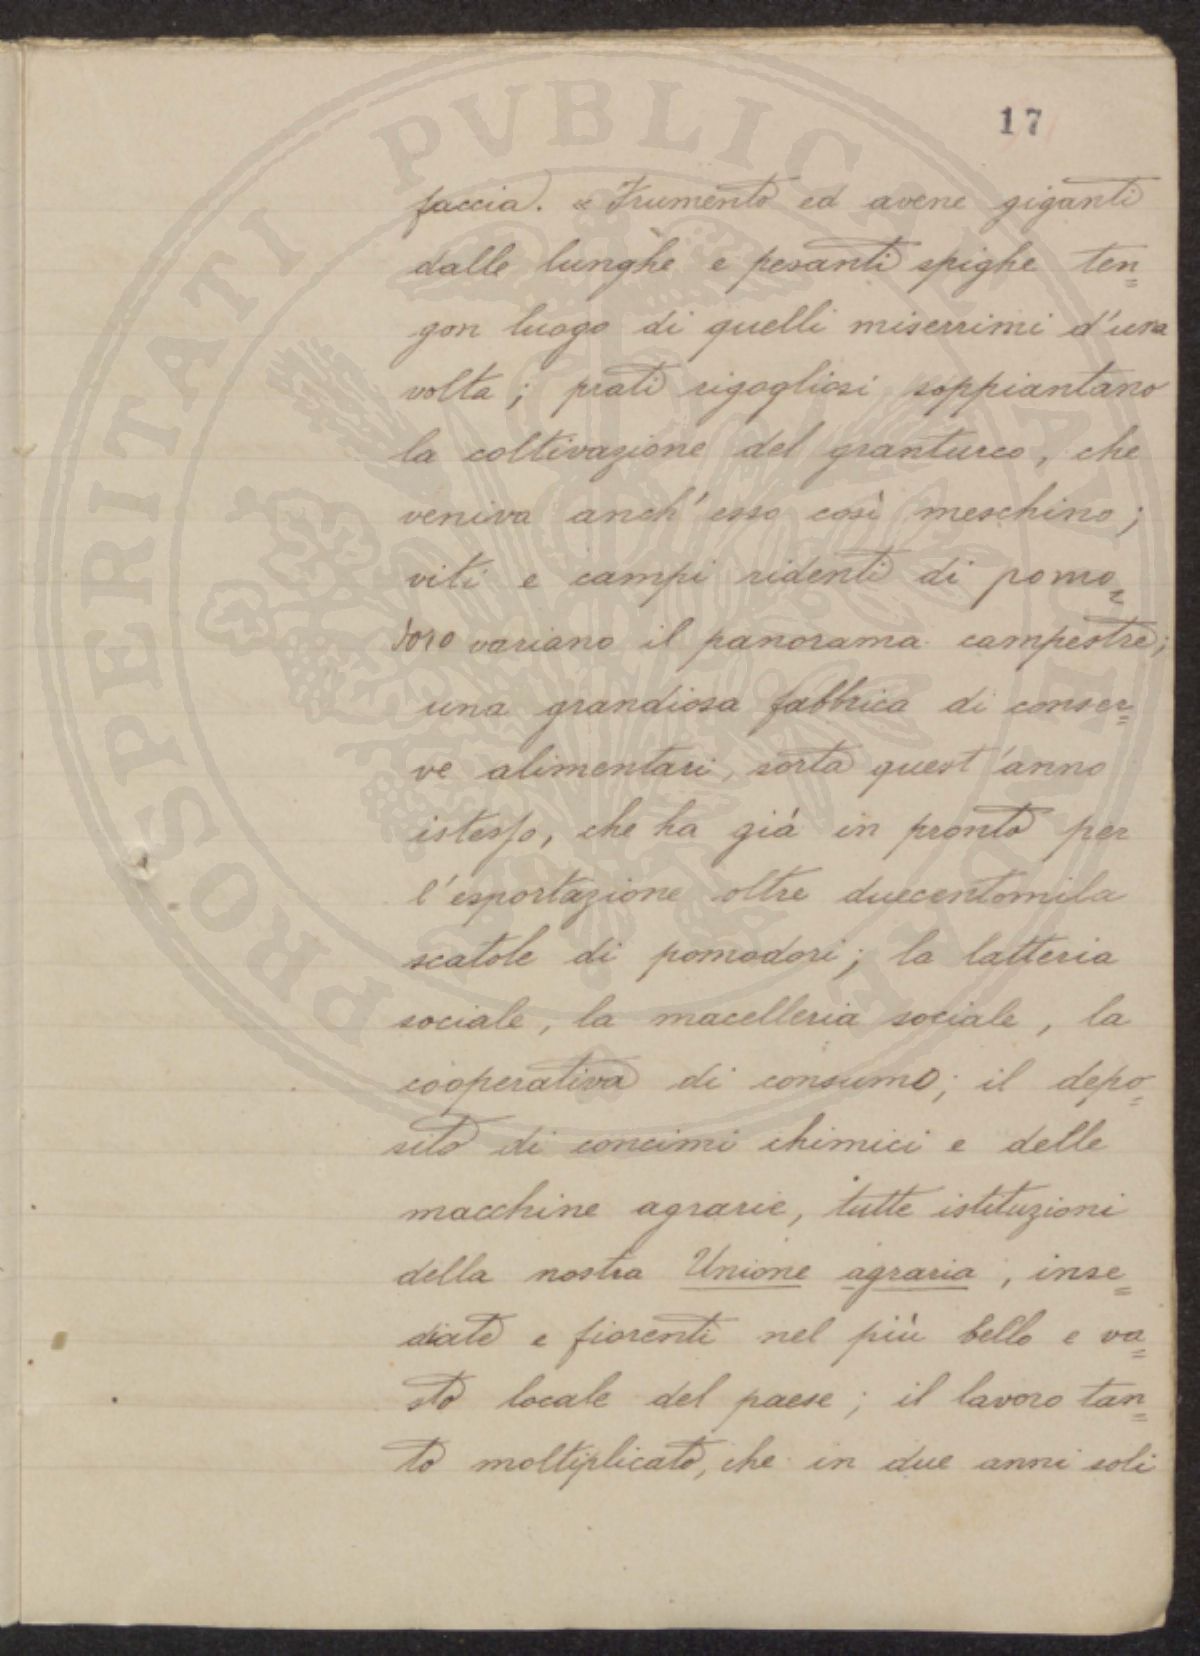 17
faccia. « Frumento ed avene giganti
dalle lunghe e pesanti spighe ten=
gon luogo di quelli miserrimi d'una
volta; prati rigogliosi soppiantano
la coltivazione del granturco, che
veniva anch'esso così meschino;
viti e campi ridenti di pomo=
doro variano il panorama campestre;
una grandiosa fabbrica di conser=
ve alimentari, sorta quest'anno
istesso, che ha già in pronto per
l'esportazione oltre duecentomila
scatole di pomodori; la latteria
sociale, la macelleria sociale, la
cooperativa di consumo; il depo=
sito di concimi chimici e delle
macchine agrarie, tutte istituzioni
della nostra Unione agraria, inse=
diate e fiorenti nel più bello e va=
sto locale del paese; il lavoro tan=
to moltiplicato, che in due anni soli
PROSPERITATI PVBLICAE